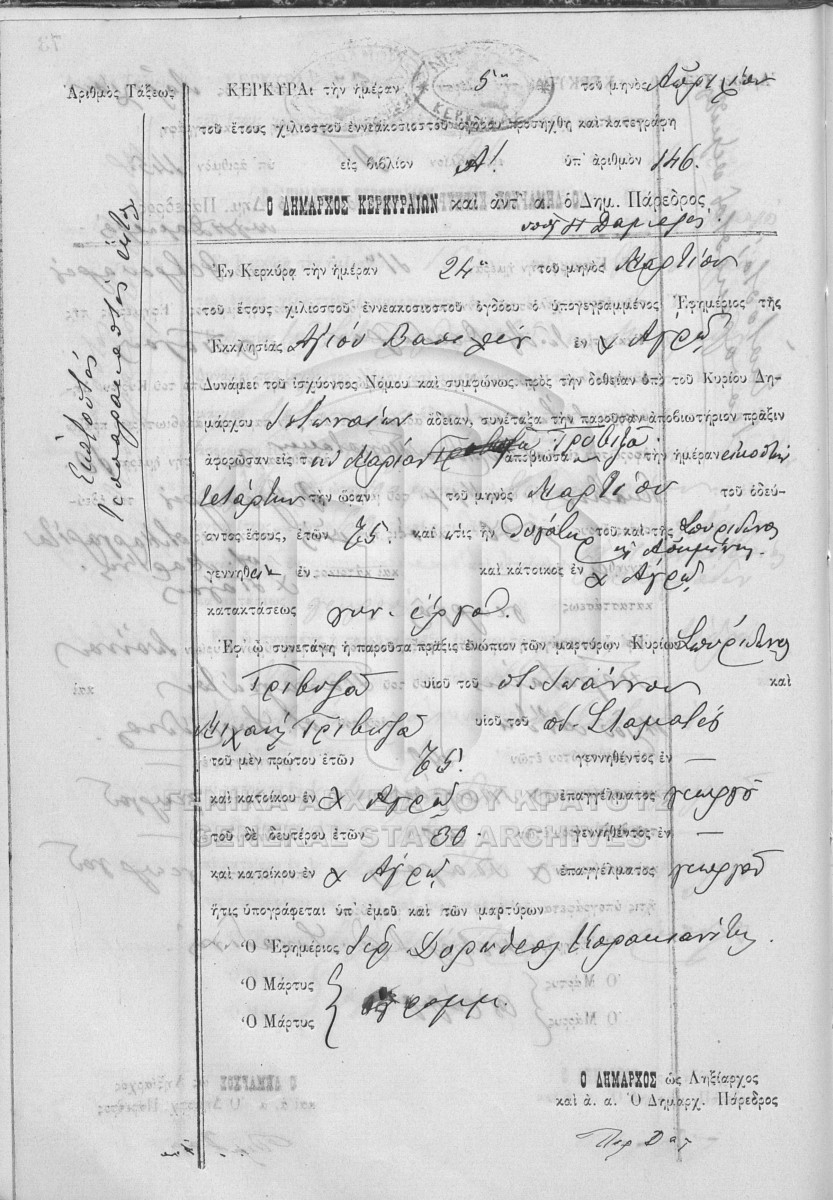 Ἀριθμὸς Τάξεως
Ἑκατοστὸς
τεσσαρακοστὸς ἕκτος
ΚΕΡΚΥΡΑ: τὴν ἡμέραν 5ην τοῦ μηνὸς Ἀπριλίου
τοῦ ἔτους χιλιοστοῦ ἐννεακοσιοστοῦ ὀγδόου προσήχθη καὶ κατεγράφη
εἰς βιβλίον Α! ὑπ' ἀριθμὸν 146.
Ο ΔΗΜΑΡΧΟΣ ΚΕΡΚΥΡΑΙΩΝ καὶ ἀντ' α. ὁ Δημ. Πάρεδρος
Ἐν Κερκύρᾳ τὴν ἡμέραν 24ην τοῦ μηνὸς Μαρτίου
τοῦ ἔτους χιλιοστοῦ ἐννεακοσιοστοῦ ὀγδόου ὁ ὑπογεγραμμένος Ἐφημέριος τῆς
Ἐκκλησίας Ἁγίου Βασιλείου ἐν χ Ἀγρῷ
Δυνάμει τοῦ ἰσχύοντος Νόμου καὶ συμφώνως πρὸς τὴν δοθεῖαν ὑπὸ τοῦ Κυρίου Δη-
μάρχου ἄδειαν, συνέταξα τὴν παροῦσαν ἀποβιωτήριον πρᾶξιν
ἀφορῶσαν εἰς τὴν Μαρίαν Τριβυζᾶ ἀποβιώσασαν τὴν ἡμέραν εἰκοστὴν
τετάρτην τὴν ὥραν τοῦ μηνὸς Μαρτίου τοῦ ὁδεύ-
οντος ἔτους, ἐτῶν 75. καὶ ἥτις ἦν θυγάτηρ τοῦ καὶ τῆς Σπυρίδωνος
καὶ Ἀσημίνης.
γεννηθεῖσα ἐν — καὶ κάτοικος ἐν χ Ἀγρῷ
καταστάσεως γυν. ἐργου.
Ἐφ' ᾧ συνετάγη ἡ παροῦσα πρᾶξις ἐνώπιον τῶν μαρτύρων Κυρίων Σπυρίδωνος
Τριβυζᾶ υἱοῦ τοῦ ποτ. Ἰωάννου καὶ
Μιχαὴλ Τριβυζᾶ υἱοῦ τοῦ ποτ. Σταματίου
τοῦ μὲν πρώτου ἐτῶν 75. γεννηθέντος ἐν —
καὶ κατοίκου ἐν χ Ἀγρῷ ἐπαγγέλματος γεωργοῦ
τοῦ δὲ δευτέρου ἐτῶν 30 γεννηθέντος ἐν —
καὶ κατοίκου ἐν χ Ἀγρῷ ἐπαγγέλματος γεωργοῦ
ἥτις ὑπογράφεται ὑπ' ἐμοῦ καὶ τῶν μαρτύρων
Ὁ Ἐφημέριος Ἱερ. Δωρόθεος Κορακιανίτης.
Ὁ Μάρτυς
Ὁ Μάρτυς
ἀγράμμ.
Ο ΔΗΜΑΡΧΟΣ ὡς Ληξίαρχος
καὶ ἀ. α. Ὁ Δημαρχ. Πάρεδρος
ΓΕΝΙΚΑ ΑΡΧΕΙΑ ΤΟΥ ΚΡΑΤΟΥΣ
GENERAL STATE ARCHIVES